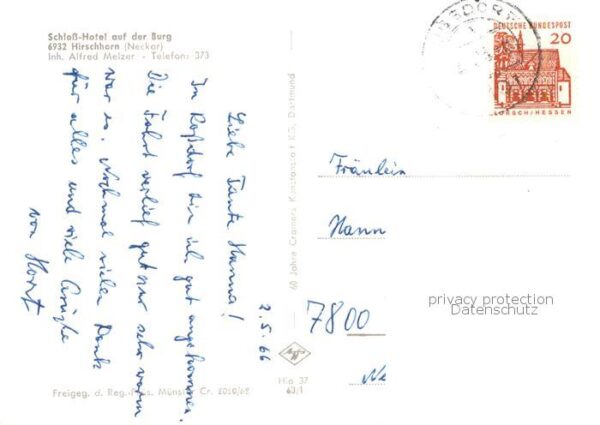 Schloß-Hotel auf der Burg
6932 Hirschhorn (Neckar)
Inh. Alfred Melzer - Telefon: 373
2.5.66
Liebe Tante Hanna!
In Roßdorf bin ich gut angekommen.
Die Fahrt verlief gut nur sehr warm
war es. Nochmal vielen Dank
für alles und viele Grüße
von Horst
Freigeg. d. Reg. Präs. Münster Cr.
60 Jahre Cramers Kunstanstalt KG, Dortmund
Hio 37
63/1
DEUTSCHE BUNDESPOST
20
LORSCH/HESSEN
Fräulein
Hann
7800
privacy protection
Datenschutz